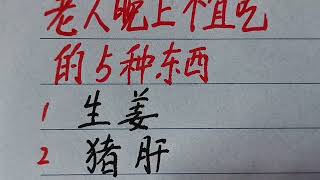 老人晚上不宜吃
的5种东西
1 生姜
2 猪肝